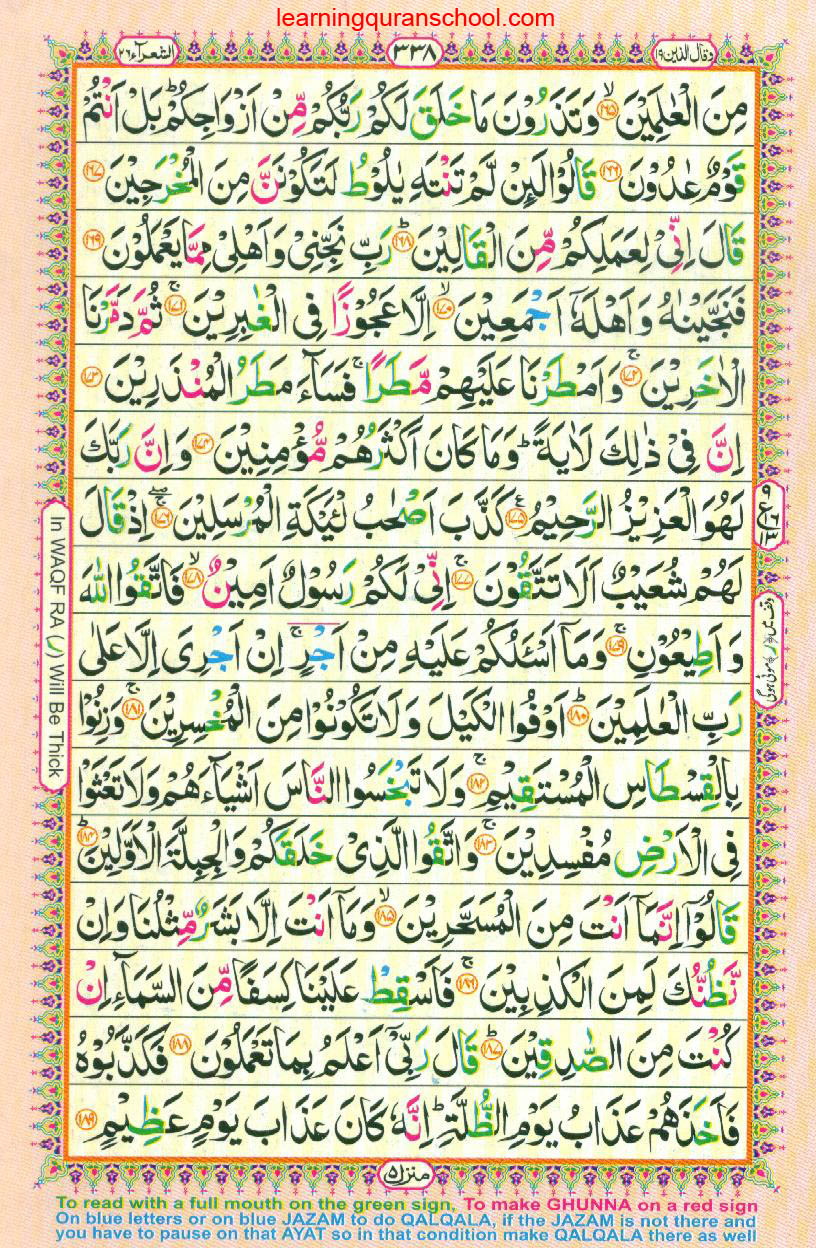 learningquranschool.com
وقال الذین ۱۹
۳۳۸
الشعرآء ۲۶
مِنَ الْعٰلَمِیْنَ ﴿۱۶۵﴾ۙ وَتَذَرُوْنَ مَا خَلَقَ لَكُمْ رَبُّكُمْ مِّنْ اَزْوَاجِكُمْ ؕ بَلْ اَنْتُمْ
قَوْمٌ عٰدُوْنَ ﴿۱۶۶﴾ قَالُوْا لَىِٕنْ لَّمْ تَنْتَهِ یٰلُوْطُ لَتَكُوْنَنَّ مِنَ الْمُخْرَجِیْنَ ﴿۱۶۷﴾
قَالَ اِنِّیْ لِعَمَلِكُمْ مِّنَ الْقَالِیْنَ ﴿۱۶۸﴾ؕ رَبِّ نَجِّنِیْ وَاَهْلِیْ مِمَّا یَعْمَلُوْنَ ﴿۱۶۹﴾
فَنَجَّیْنٰهُ وَاَهْلَهٗۤ اَجْمَعِیْنَ ﴿۱۷۰﴾ۙ اِلَّا عَجُوْزًا فِی الْغٰبِرِیْنَ ﴿۱۷۱﴾ۚ ثُمَّ دَمَّرْنَا
الْاٰخَرِیْنَ ﴿۱۷۲﴾ۚ وَاَمْطَرْنَا عَلَیْهِمْ مَّطَرًا ۚ فَسَآءَ مَطَرُ الْمُنْذَرِیْنَ ﴿۱۷۳﴾
اِنَّ فِیْ ذٰلِكَ لَاٰیَةً ؕ وَمَا كَانَ اَكْثَرُهُمْ مُّؤْمِنِیْنَ ﴿۱۷۴﴾ وَاِنَّ رَبَّكَ
لَهُوَ الْعَزِیْزُ الرَّحِیْمُ ﴿۱۷۵﴾۠ كَذَّبَ اَصْحٰبُ لْـَٔیْكَةِ الْمُرْسَلِیْنَ ﴿۱۷۶﴾ۚۖ اِذْ قَالَ
لَهُمْ شُعَیْبٌ اَلَا تَتَّقُوْنَ ﴿۱۷۷﴾ۚ اِنِّیْ لَكُمْ رَسُوْلٌ اَمِیْنٌ ﴿۱۷۸﴾ۙ فَاتَّقُوا اللّٰهَ
وَاَطِیْعُوْنِ ﴿۱۷۹﴾ۚ وَمَاۤ اَسْـَٔلُكُمْ عَلَیْهِ مِنْ اَجْرٍ ۚ اِنْ اَجْرِیَ اِلَّا عَلٰی
رَبِّ الْعٰلَمِیْنَ ﴿۱۸۰﴾ؕ اَوْفُوا الْكَیْلَ وَلَا تَكُوْنُوْا مِنَ الْمُخْسِرِیْنَ ﴿۱۸۱﴾ۚ وَزِنُوْا
بِالْقِسْطَاسِ الْمُسْتَقِیْمِ ﴿۱۸۲﴾ۚ وَلَا تَبْخَسُوا النَّاسَ اَشْیَآءَهُمْ وَلَا تَعْثَوْا
فِی الْاَرْضِ مُفْسِدِیْنَ ﴿۱۸۳﴾ۚ وَاتَّقُوا الَّذِیْ خَلَقَكُمْ وَالْجِبِلَّةَ الْاَوَّلِیْنَ ﴿۱۸۴﴾ؕ
قَالُوْۤا اِنَّمَاۤ اَنْتَ مِنَ الْمُسَحَّرِیْنَ ﴿۱۸۵﴾ۙ وَمَاۤ اَنْتَ اِلَّا بَشَرٌ مِّثْلُنَا وَاِنْ
نَّظُنُّكَ لَمِنَ الْكٰذِبِیْنَ ﴿۱۸۶﴾ۚ فَاَسْقِطْ عَلَیْنَا كِسَفًا مِّنَ السَّمَآءِ اِنْ
كُنْتَ مِنَ الصّٰدِقِیْنَ ﴿۱۸۷﴾ؕ قَالَ رَبِّیْۤ اَعْلَمُ بِمَا تَعْمَلُوْنَ ﴿۱۸۸﴾ فَكَذَّبُوْهُ
فَاَخَذَهُمْ عَذَابُ یَوْمِ الظُّلَّةِ ؕ اِنَّهٗ كَانَ عَذَابَ یَوْمٍ عَظِیْمٍ ﴿۱۸۹﴾
In WAQF RA (ر) Will Be Thick
منزل ۵
To read with a full mouth on the green sign, To make GHUNNA on a red sign
On blue letters or on blue JAZAM to do QALQALA, if the JAZAM is not there and
you have to pause on that AYAT so in that condition make QALQALA there as well